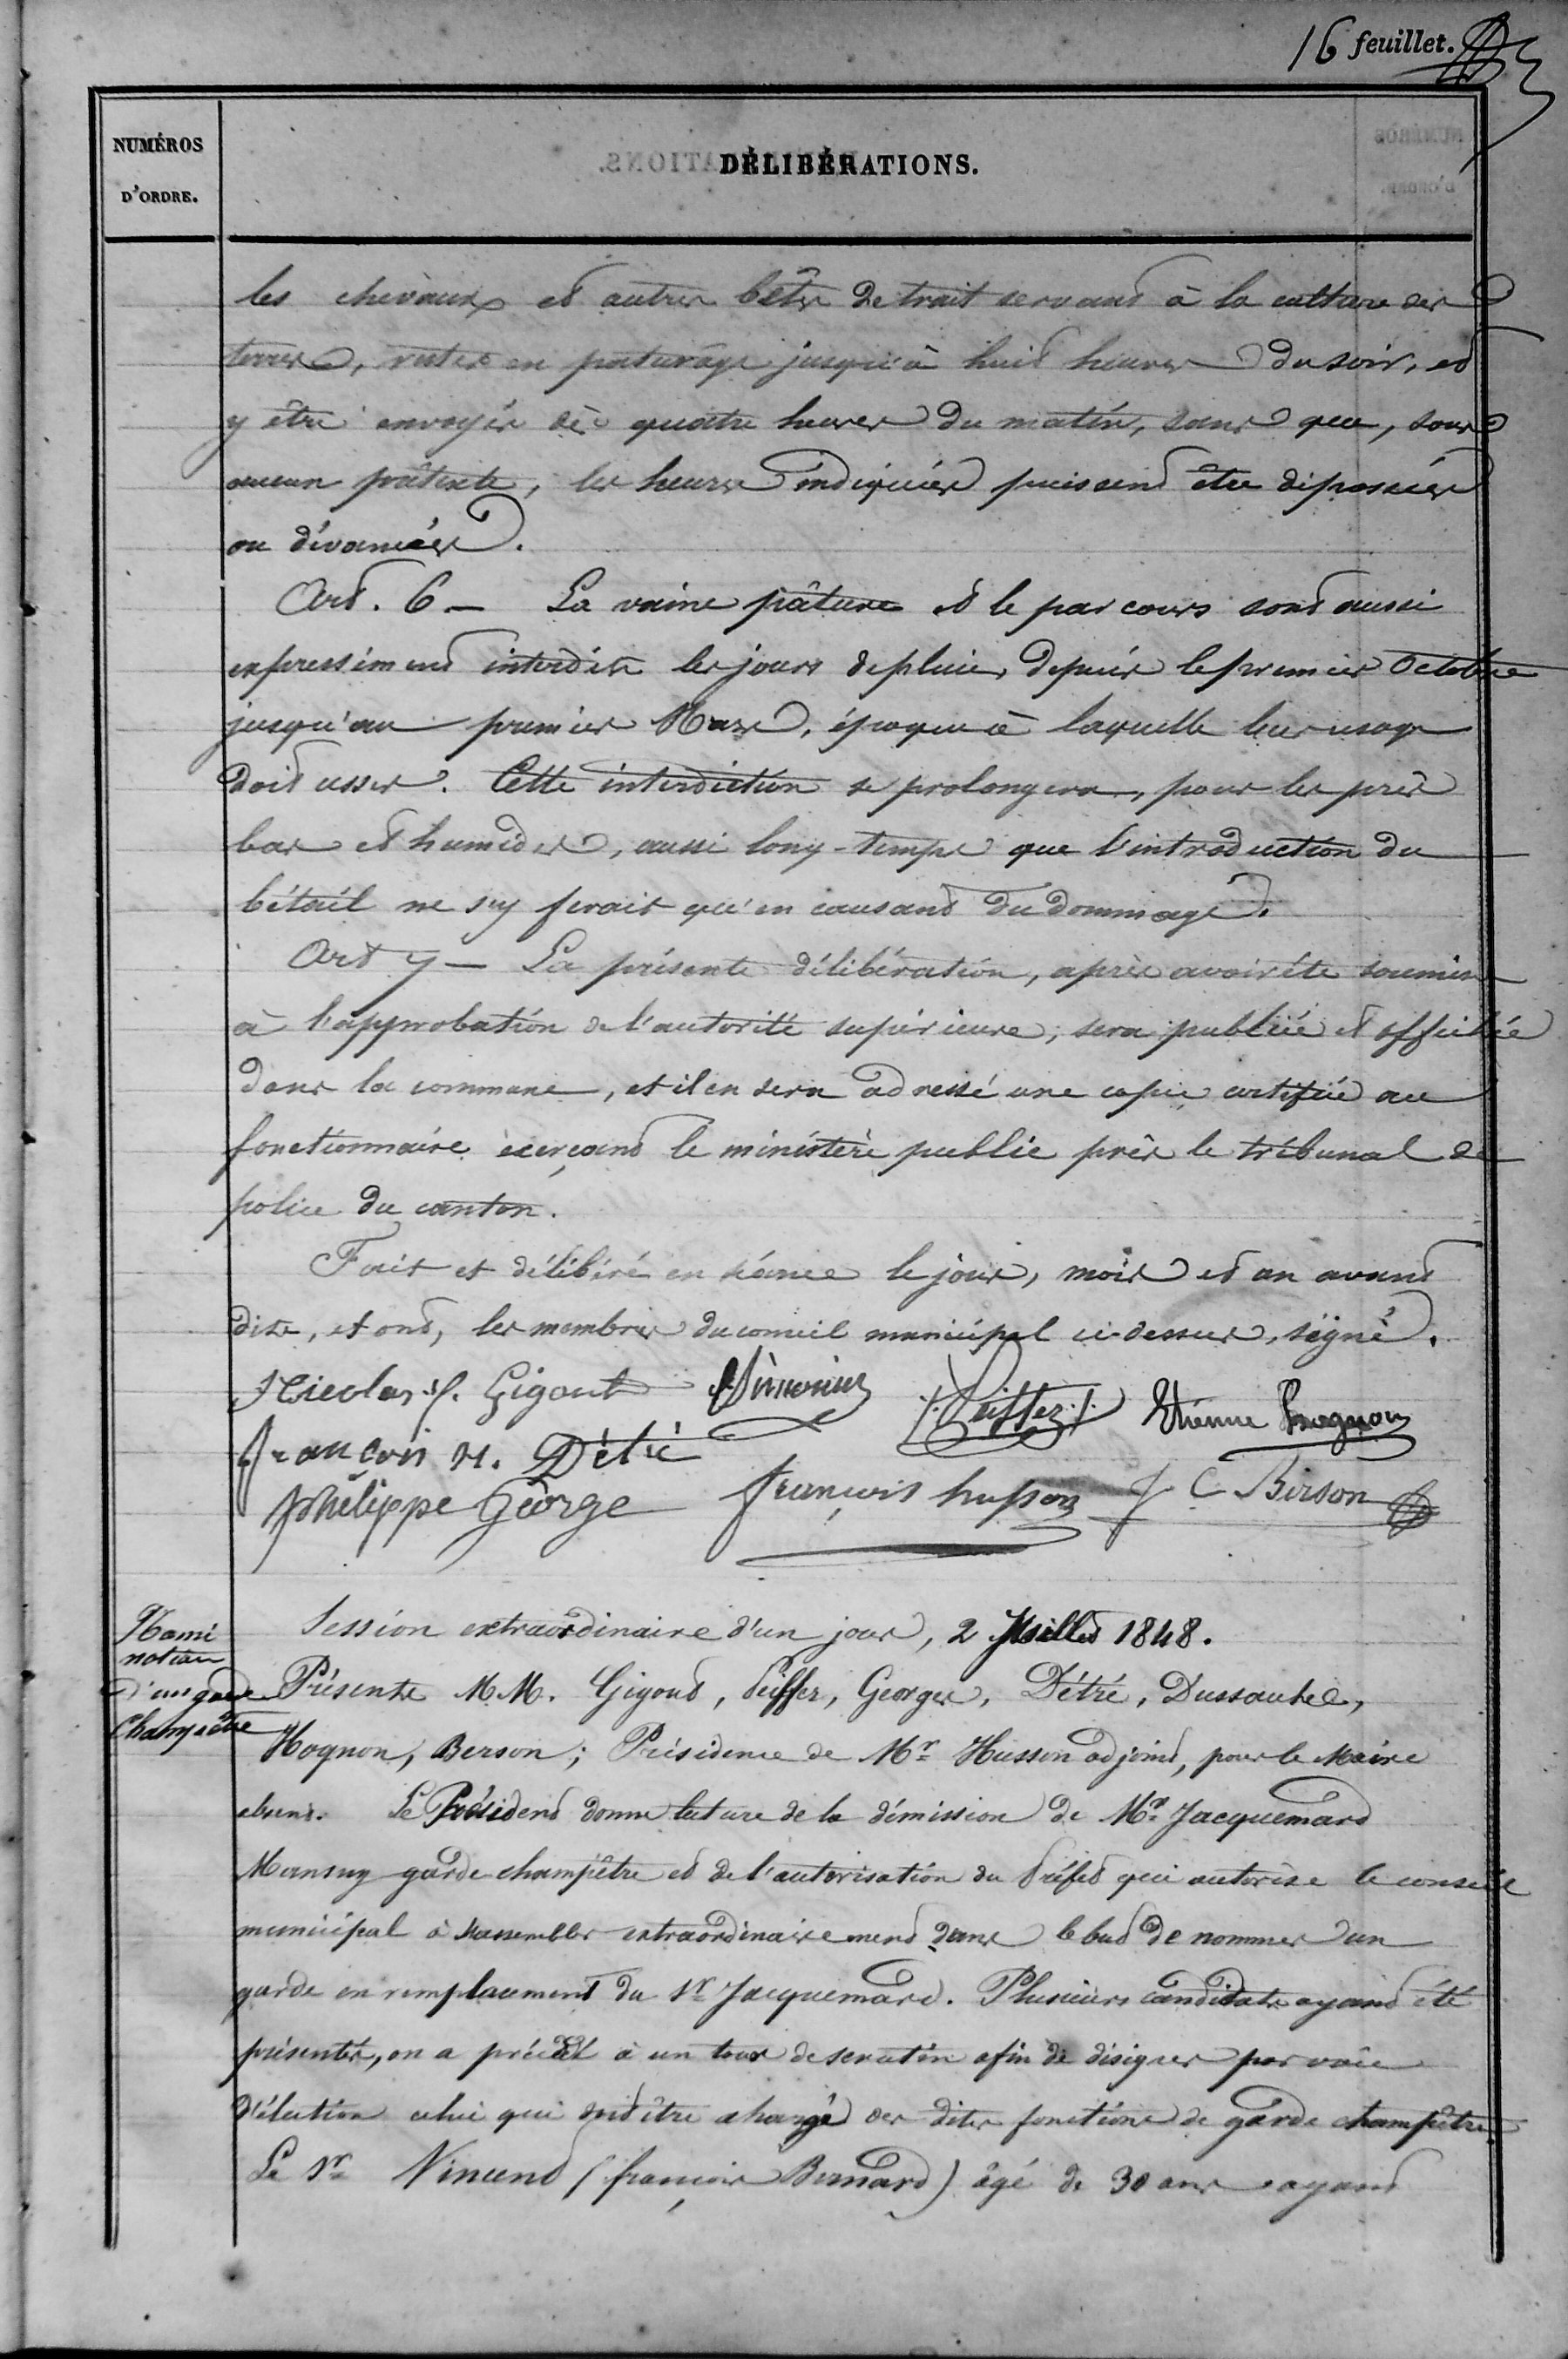 16 feuillet.
NUMÉROS
D'ORDRE.
DÉLIBÉRATIONS.
les chevaux et autres bêtes de trait servant à la culture des
terres, rester en pâturage jusqu'à huit heures du soir, et
y être envoyés dès quatre heures du matin, sans que, sous
aucun prétexte, les heures indiquées puissent être dépassées
ou dévancées.
Art. 6 — La vaine pâture et le parcours sont aussi
expressément interdits les jours de pluie, depuis le premier Octobre
jusqu'au premier Mars, époque à laquelle leur usage
doit cesser. Cette interdiction se prolongera, pour les prés
bas et humides, aussi long-temps que l'introduction du
bétail ne s'y ferait qu'en causant du dommage.
Art 7 — La présente délibération, après avoir été soumise
à l'approbation de l'autorité supérieure, sera publiée et affichée
dans la commune, et il en sera adressé une copie certifiée au
fonctionnaire exerçant le ministère public près le tribunal de
police du canton.
Fait et délibéré en séance le jour, mois et an avant
dits, et ont, les membres du conseil municipal ci-dessus, signé.
Nicolas f. Gigout Peiffer Etienne Hognon
François N. Détré
Philippe George François husson J C Berson
Nomi
nation
d'un garde
Champêtre
Session extraordinaire d'un jour, 2 Juillet 1848.
Présents M.M. Gigout, Peiffer, Georges, Détré, Dussautel,
Hognon, Berson; Présidence de Mr Husson adjoint, pour le Maire
absent. Le Président donne lecture de la démission de Mr Jacquemard
Mansuy garde champêtre et de l'autorisation du Préfet qui autorise le conseil
municipal à s'assembler extraordinairement dans le but de nommer un
garde en remplacement du Sr Jacquemard. Plusieurs candidats ayant été
présentés, on a procédé à un tour de scrutin afin de désigner par voie
d'élection celui qui doit être chargé des dites fonctions de garde champêtre.
Le Sr Vincent (françois Bernard) âgé de 30 ans ayant